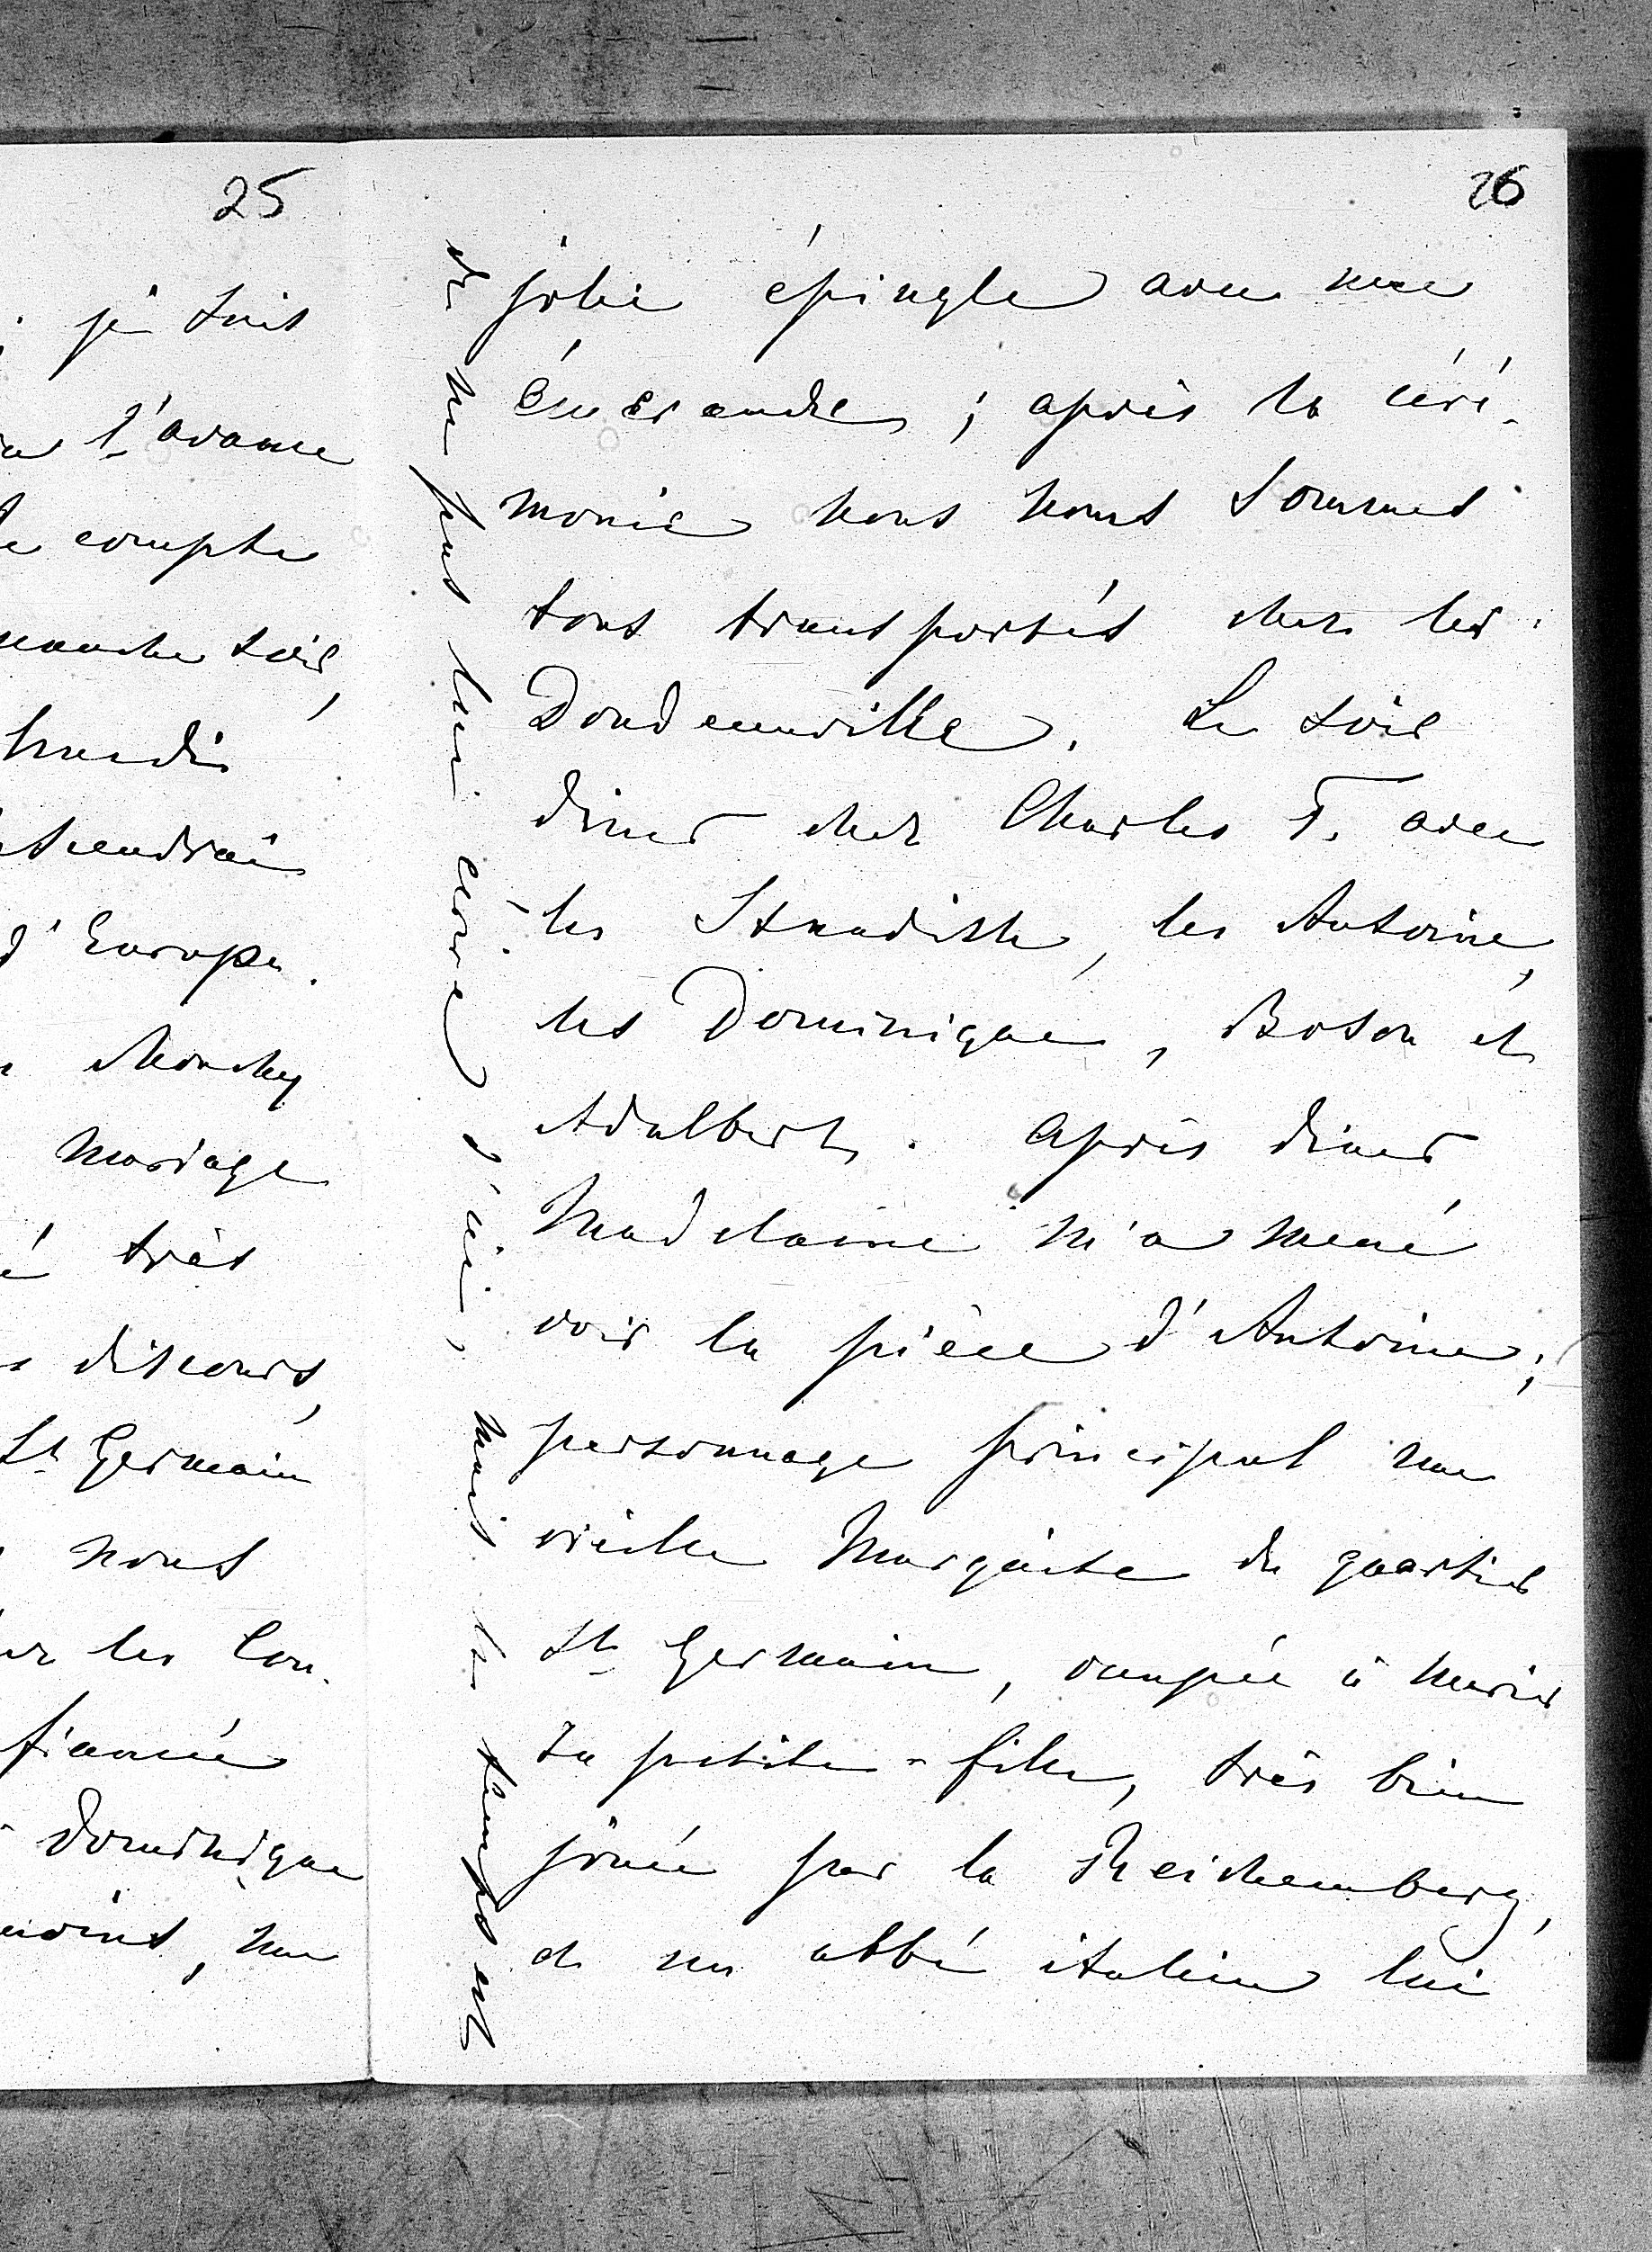 25
; je suis
l'avance
compte
soir,
lundi
d'Europe.
Mouchy
mariage
très
discours,
St Germain
nous
les Con-
fiancée
Dominique
, une
26
jolie épingle avec une
émeraude ; après la céré-
monie nous nous sommes
tous transportés chez les
Doudeauville. Le soir
diner chez Charles F. avec
les Standish, les Antoine,
les Dominique, Boson et
Adalbert. Après diner
Madelaine m'a mené
voir la pièce d'Antoine ;
personnage principal une
vieille Marquise du quartier
St Germain, occupée à marier
sa petite-fille, très bien
jouée par la Reichemberg,
et un abbé italien lui
de ne pas lui écrire d'ici, mais le temps est